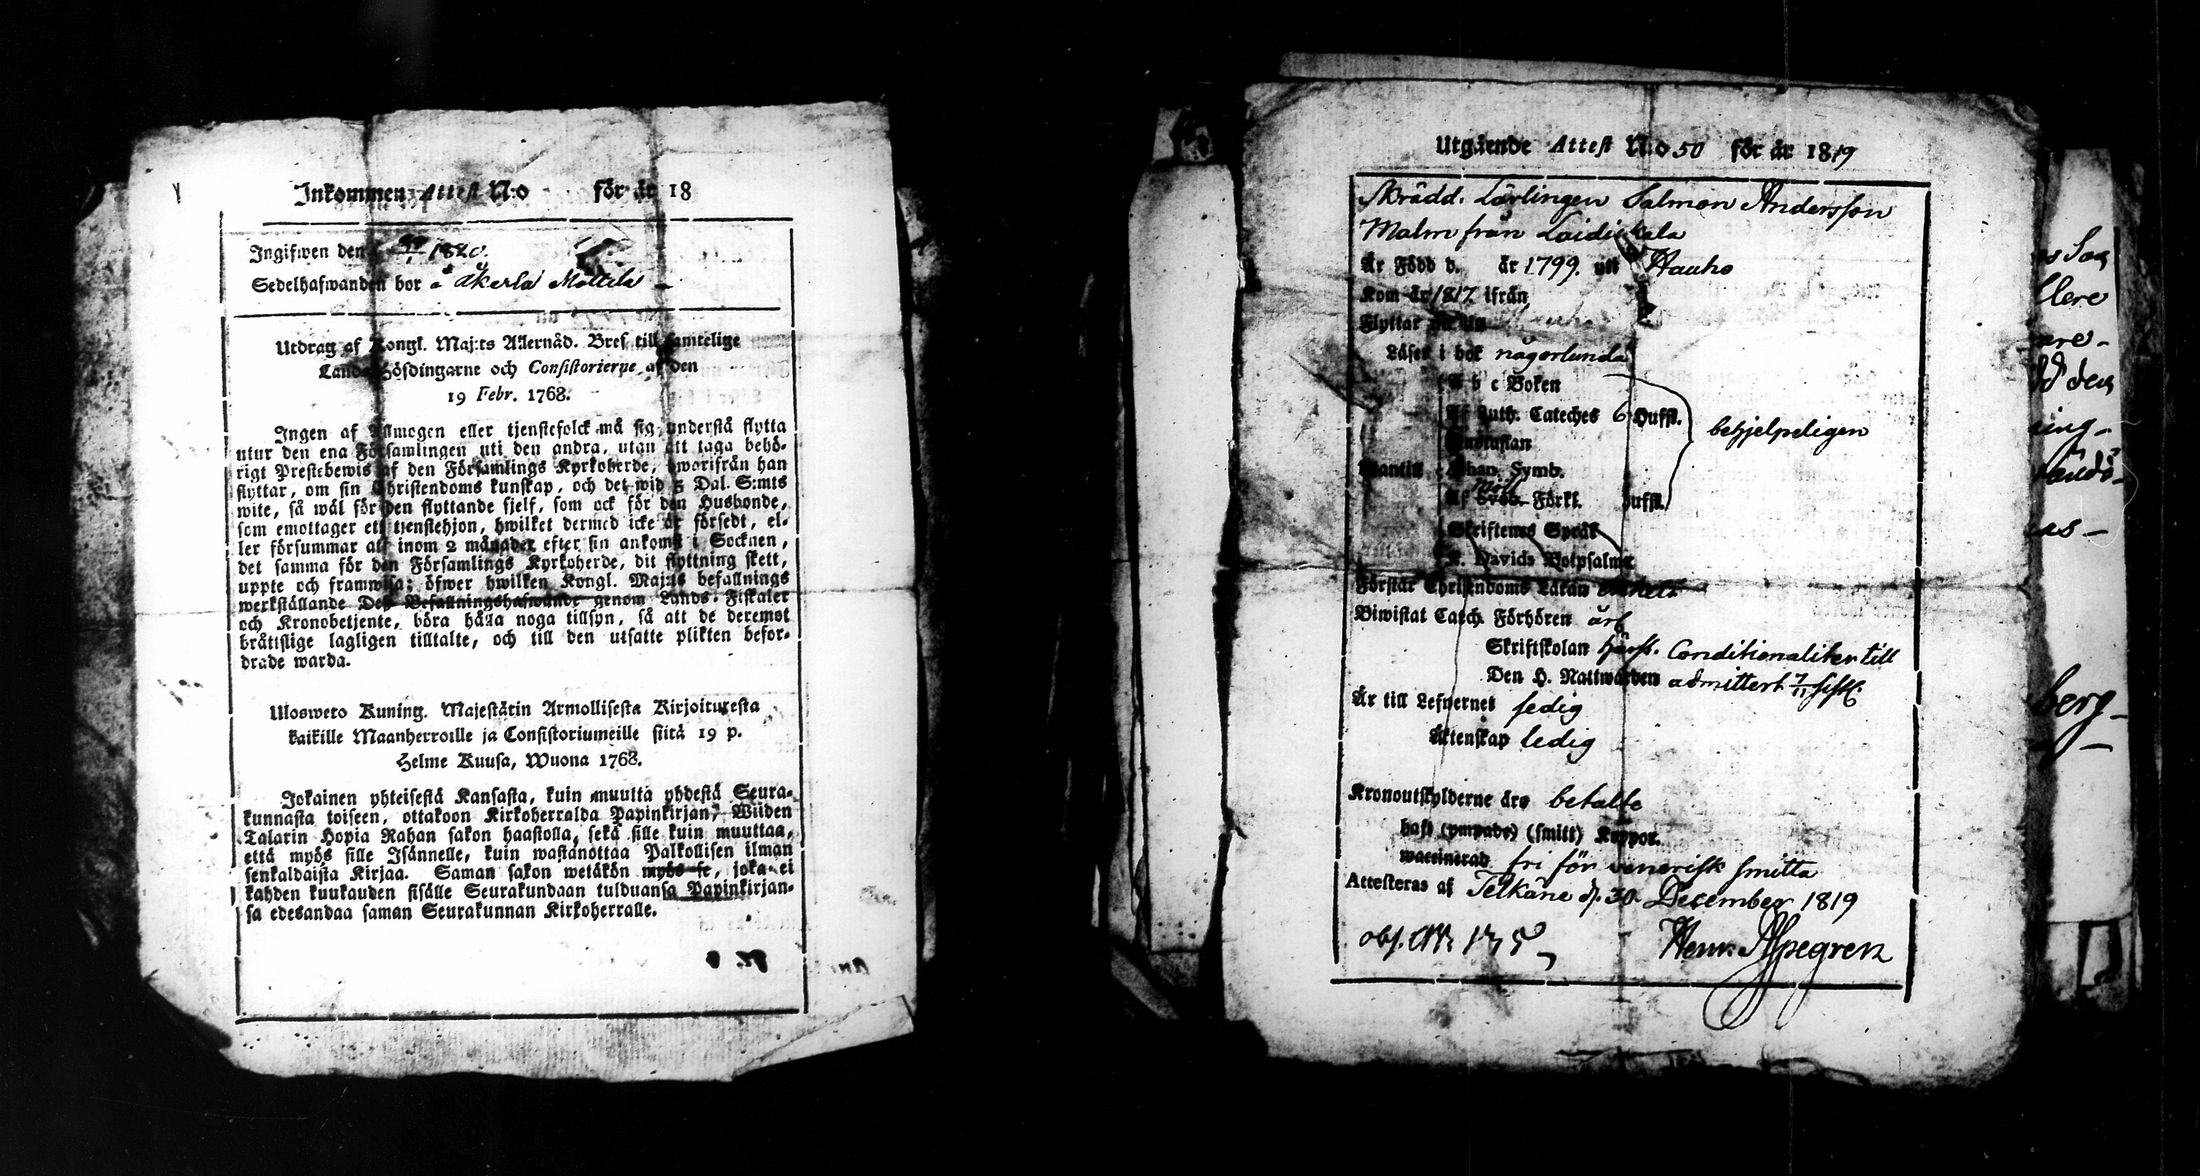 Inkommen Attest N:o för år 18
Ingifwen den 1820.
Sedelhafwanden bor å Åkerla Mattila
Utdrag af Kongl. Maj:ts Allernåd. Bref till samtelige
Landshöfdingarne och Consistorierne af den
19 Febr. 1768.
Ingen af Allmogen eller tjenstefolck må sig understå flytta
utur den ena Församlingen uti den andra, utan att taga behö-
rigt Prestebewis af den Församlings Kyrkoherde, hwarifrån han
flyttar, om sin Christendoms kunskap, och det wid 5 Dal. S:mts
wite, så wäl för den flyttande sjelf, som ock för den Husbonde,
som emottager ett tjenstehjon, hwilket dermed icke är försedt, el-
ler försummar att inom 2 månader efter sin ankomst i Socknen,
det samma för den Församlings Kyrkoherde, dit flyttning skett,
uppte och framwisa; öfwer hwilken Kongl. Maj:ts befallnings
werkställande Des Befallningshafwande genom Lands-Fiskaler
och Kronobetjente, böra hålla noga tillsyn, så att de deremot
bråtislige lagligen tilltalte, och till den utsatte plikten befor-
drade warda.
Ulosweto Kuning. Majestätin Armollisesta Kirjoituxesta
kaikille Maanherroille ja Consistoriumeille siitä 19 p.
Helme Kuusa, Wuona 1768.
Jokainen yhteisestä Kansasta, kuin muulta yhdestä Seura-
kunnasta toiseen, ottakoon Kirkoherralda Papinkirjan, Wiiden
Talarin Hopia Rahan sakon haastolla, sekä sille kuin muuttaa,
että myös sille Isännelle, kuin wastanottaa Palkollisen ilman
senkaldaista Kirjaa. Saman sakon wetäkön myös se, joka ei
kahden kuukauden sisälle Seurakundaan tulduansa Papinkirjan-
sa edesandaa saman Seurakunnan Kirkoherralle.
Utgående Attest N:o 50 för år 1819
Skrädd. Lärlingen Salmon Andersson
Malm från Laidikkala
Är Född d. år 1799. uti Hauho
Kom år 1817. ifrån
Flyttar
Läser i bok någorlunda
A b c Boken
Af Luth. Cateches 6 Hufst.
Hustaflan
behjelpeligen
Wantill Athan. Symb.
Af Sveb. Förkl. Hufst.
Skriftenes Språk
K. Davids Botpsalmer
Förstår Christendoms Läran enkelt
Biwistat Catech. Förhören årl
Skriftskolan härst. Conditionaliter till
Den H. Nattwarden admittert 7/11 sistl.
Är till Lefvernet sedig
Äktenskap ledig
Kronoutskylderne äro betalte
haft (ympade) (smitt) Koppor.
waccinerad fri för venerisk smitta
Attesteras af Telkäne d. 30 December 1819
Henr. Alpegren